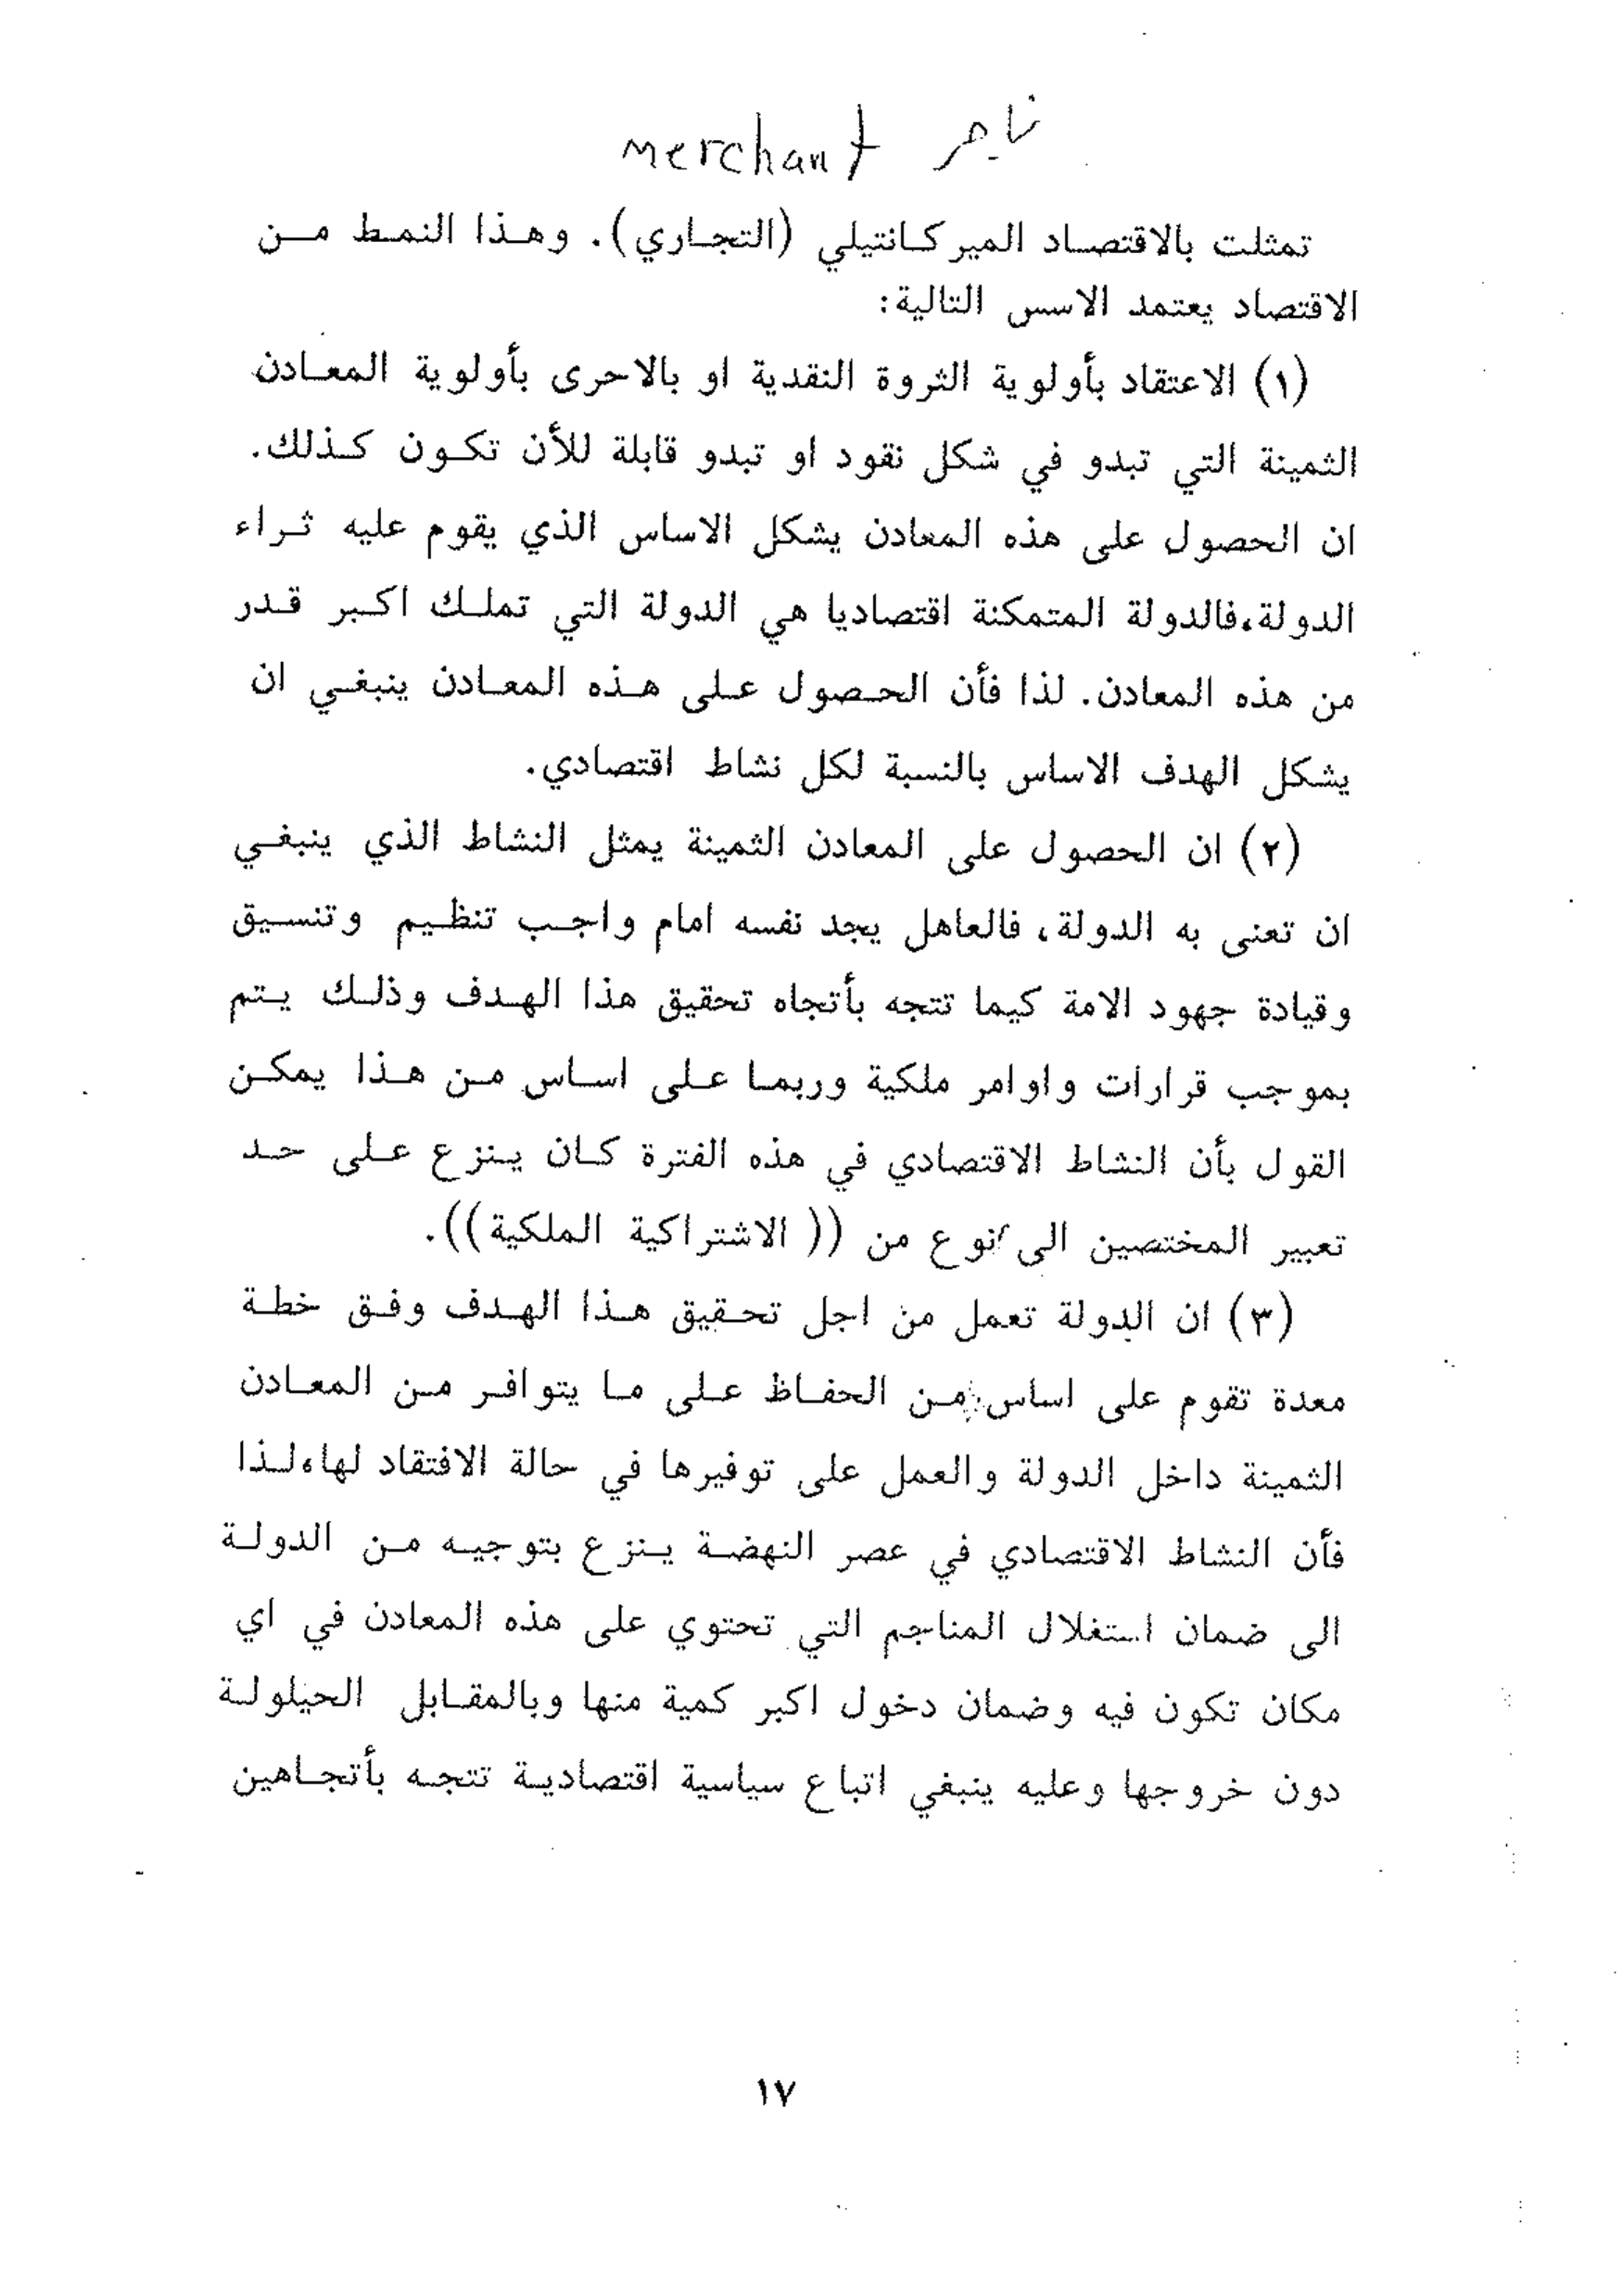 merchant تاجر
تمثلت بالاقتصاد الميركانتيلي (التجاري). وهذا النمط من
الاقتصاد يعتمد الاسس التالية:
(١) الاعتقاد بأولوية الثروة النقدية او بالاحرى بأولوية المعادن
الثمينة التي تبدو في شكل نقود او تبدو قابلة للأن تكون كذلك.
ان الحصول على هذه المعادن يشكل الاساس الذي يقوم عليه ثراء
الدولة،فالدولة المتمكنة اقتصاديا هي الدولة التي تملك اكبر قدر
من هذه المعادن. لذا فأن الحصول على هذه المعادن ينبغي ان
يشكل الهدف الاساس بالنسبة لكل نشاط اقتصادي.
(٢) ان الحصول على المعادن الثمينة يمثل النشاط الذي ينبغي
ان تعنى به الدولة، فالعاهل يجد نفسه امام واجب تنظيم وتنسيق
وقيادة جهود الامة كيما تتجه بأتجاه تحقيق هذا الهدف وذلك يتم
بموجب قرارات واوامر ملكية وربما على اساس من هذا يمكن
القول بأن النشاط الاقتصادي في هذه الفترة كان ينزع على حد
تعبير المختصين الى نوع من (( الاشتراكية الملكية)).
(٣) ان الدولة تعمل من اجل تحقيق هذا الهدف وفق خطة
معدة تقوم على اساس من الحفاظ على ما يتوافر من المعادن
الثمينة داخل الدولة والعمل على توفيرها في حالة الافتقاد لها،لذا
فأن النشاط الاقتصادي في عصر النهضة ينزع بتوجيه من الدولة
الى ضمان استغلال المناجم التي تحتوي على هذه المعادن في اي
مكان تكون فيه وضمان دخول اكبر كمية منها وبالمقابل الحيلولة
دون خروجها وعليه ينبغي اتباع سياسية اقتصادية تتجه بأتجاهين
١٧